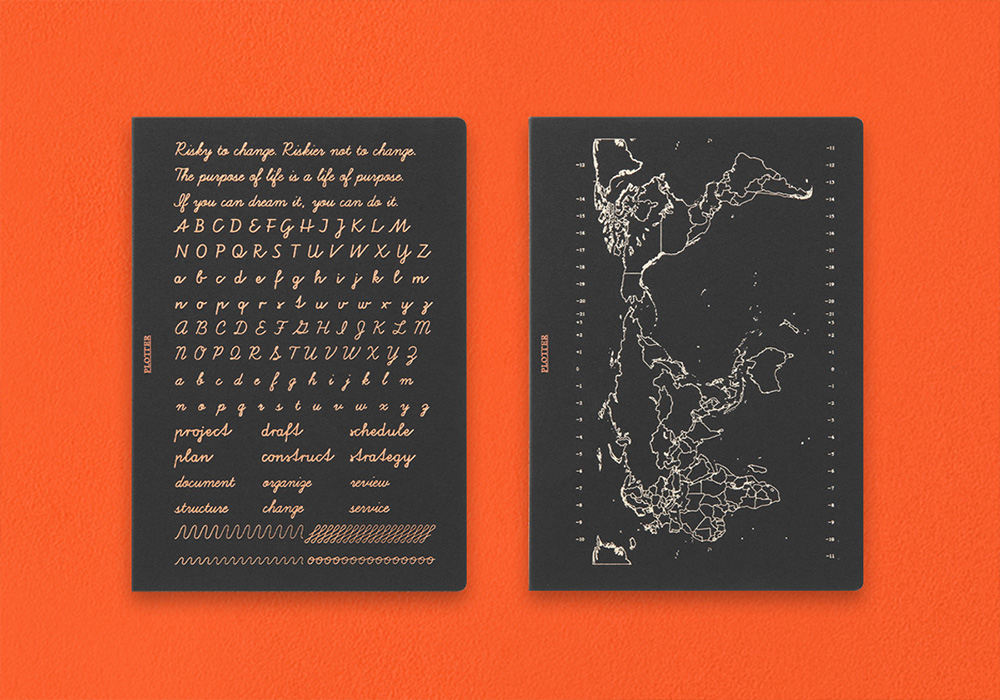 Risky to change. Riskier not to change.
The purpose of life is a life of purpose.
If you can dream it, you can do it.
A B C D E F G H I J K L M
N O P Q R S T U V W X Y Z
a b c d e f g h i j k l m
n o p q r s t u v w x y z
A B C D E F G H I J K L M
N O P Q R S T U V W X Y Z
a b c d e f g h i j k l m
n o p q r s t u v w x y z
project draft schedule
plan construct strategy
document organize review
structure change service
PLOTTER
PLOTTER
-11
-12
-13
-14
-15
-16
-17
-18